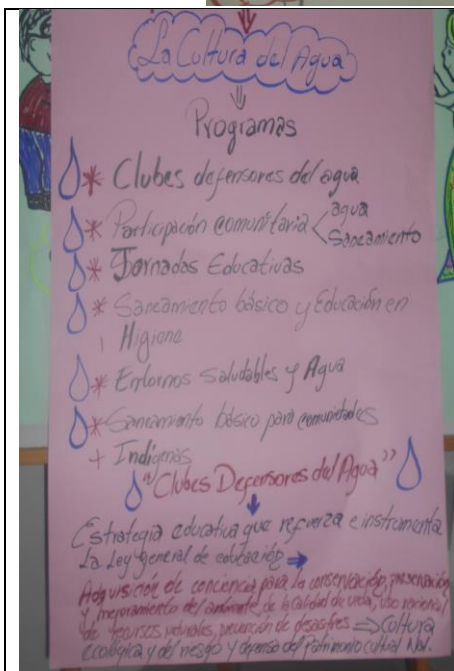 La Cultura del Agua
Programas
* Clubes defensores del agua
* Participación comunitaria < agua
Saneamiento
* Jornadas Educativas
* Saneamiento básico y Educación en
Higiene
* Entornos Saludables y Agua
* Saneamiento básico para comunidades
+ Indígenas
"Clubes Defensores del Agua"
Estrategia educativa que refuerza e instrumenta
La Ley general de educación ⇒
Adquisición de conciencia para la conservación, preservación
y mejoramiento del ambiente, de la calidad de vida, uso racional
de recursos naturales, prevención de desastres ⇒ Cultura
ecológica y del riesgo y defensa del Patrimonio cultural Nal.